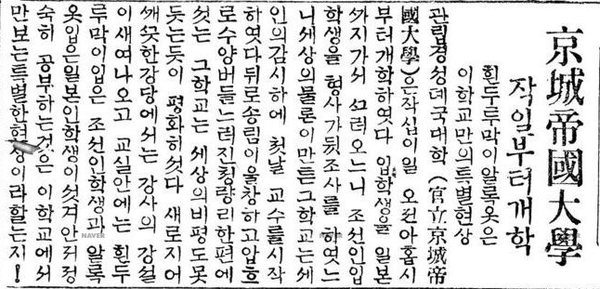 京城帝國大學
작일부터개학
흰두루막이알록옷은
이학교만의특별현상
관립경성뎨국대학 (官立京城帝
國大學)은작십이일 오전아홉시
부터개학하엿다 입학생을 일본
ᄭᅡ지가서 오느니 조선인입
학생을 형사가뒷조사를 하엿느
니세상의물론이만튼그학교는세
인의감시하에 첫날 교수를시작
하엿다뒤로송림이울창하고압흐
로수양버들느러진청량리한편에
섯는 그학교는 세상의비평도못
듯는듯이 평화히섯다 새로지어
ᄭᅢᄭᅳᆺ한강당에서는 강사의 강설
이새여나오고 교실안에는 흰두
루막이입은 조선인학생과 알록
옷입은일본인학생이섯겨안저정
숙히 공부하는것은 이학교에서
만보는특별한현상이라할는지!
NAVER